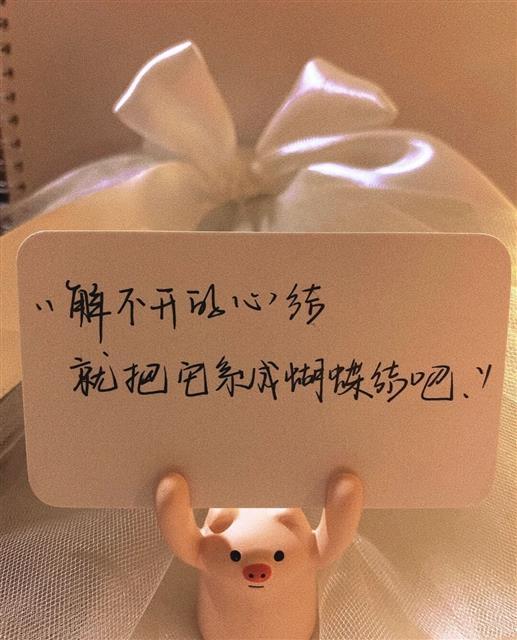 “解不开的心结
就把它系成蝴蝶结吧.”